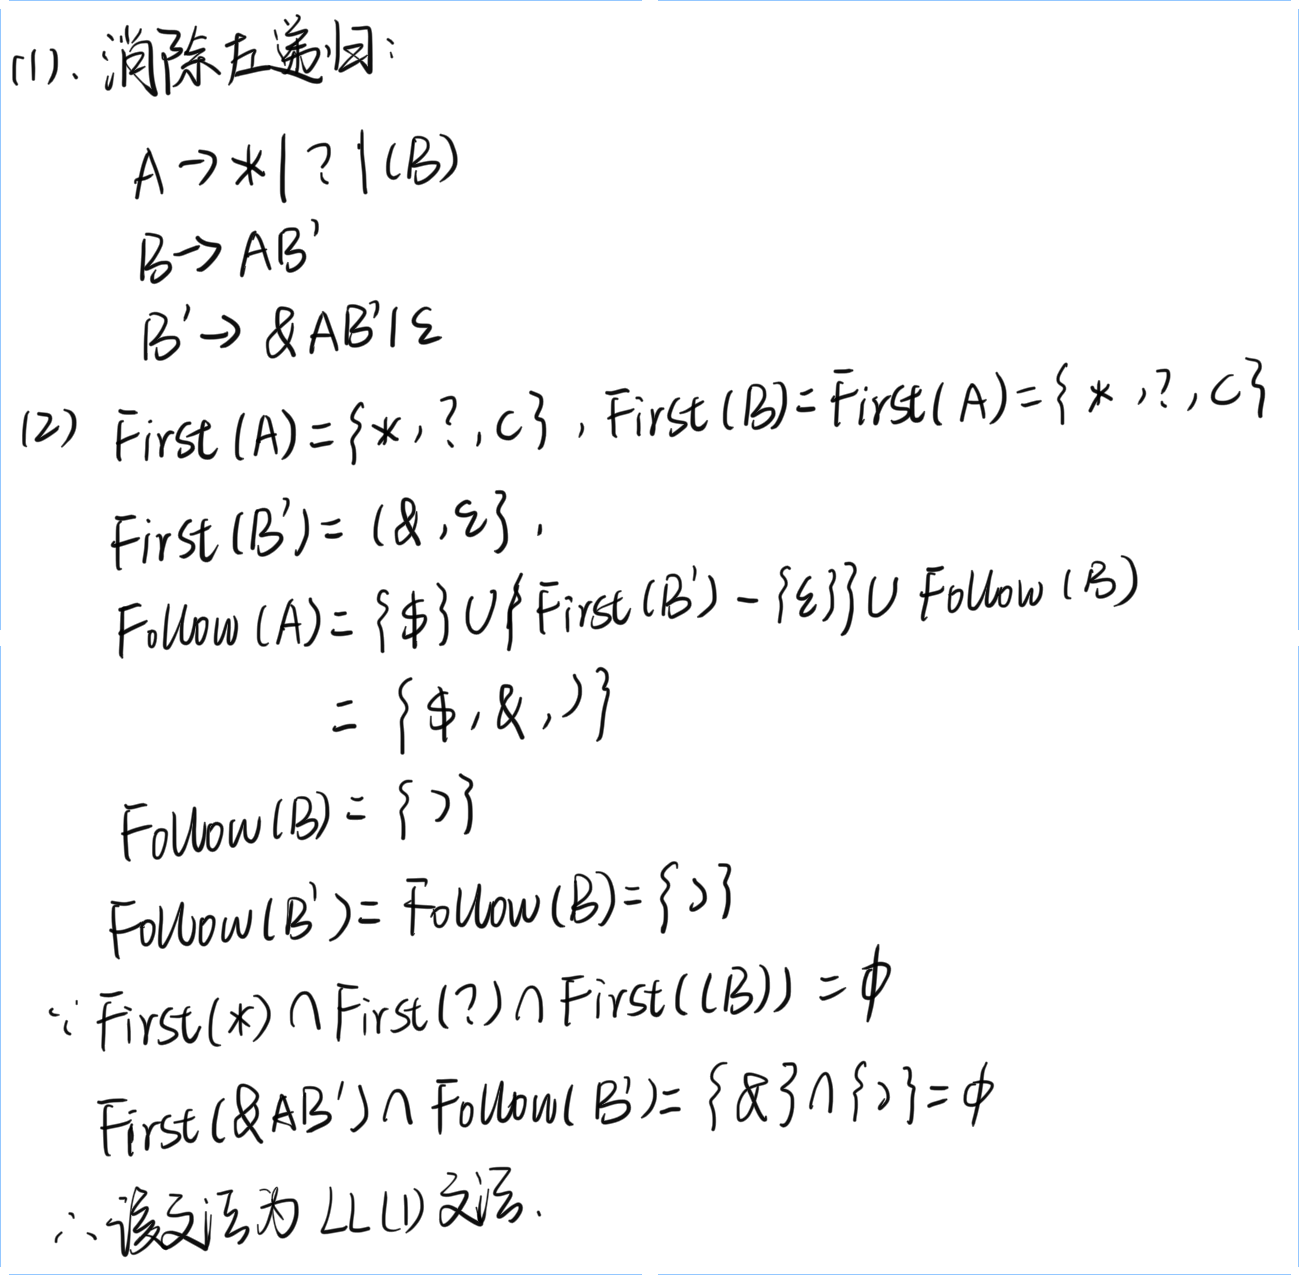 (1). 消除左递归:
A→*|?|(B)
B→AB'
B'→&AB'|ε
(2) First(A)={*,?,(}, First(B)=First(A)={*,?,(}
First(B')=(&,ε}.
Follow(A)={$}∪{First(B')-{ε}}∪Follow(B)
={$,&,)}
Follow(B)={)}
Follow(B')=Follow(B)={)}
∵First(*)∩First(?)∩First((B))=ϕ
First(&AB')∩Follow(B')={&}∩{)}=ϕ
∴该文法为LL(1)文法.